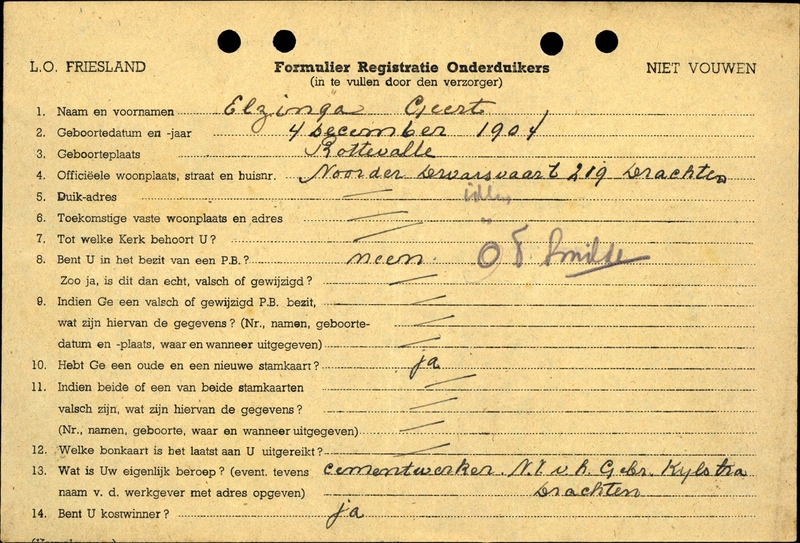 L.O. FRIESLAND Formulier Registratie Onderduikers NIET VOUWEN
(in te vullen door den verzorger)
1. Naam en voornamen Elzinga Geert
2. Geboortedatum en -jaar 4 December 1904
3. Geboorteplaats Rottevalle
4. Officiëele woonplaats, straat en huisnr. Noorder Dwarsvaart 219 Drachten
5. Duik-adres idem
6. Toekomstige vaste woonplaats en adres "
7. Tot welke Kerk behoort U?
8. Bent U in het bezit van een P.B.? neen. Smilde
Zoo ja, is dit dan echt, valsch of gewijzigd?
9. Indien Ge een valsch of gewijzigd P.B. bezit,
wat zijn hiervan de gegevens? (Nr., namen, geboorte-
datum en -plaats, waar en wanneer uitgegeven)
10. Hebt Ge een oude en een nieuwe stamkaart? ja
11. Indien beide of een van beide stamkaarten
valsch zijn, wat zijn hiervan de gegevens?
(Nr., namen, geboorte, waar en wanneer uitgegeven)
12. Welke bonkaart is het laatst aan U uitgereikt?
13. Wat is Uw eigenlijk beroep? (event. tevens cementwerker. N.V. v.h. Gebr. Kijlstra
naam v. d. werkgever met adres opgeven) Drachten
14. Bent U kostwinner? ja